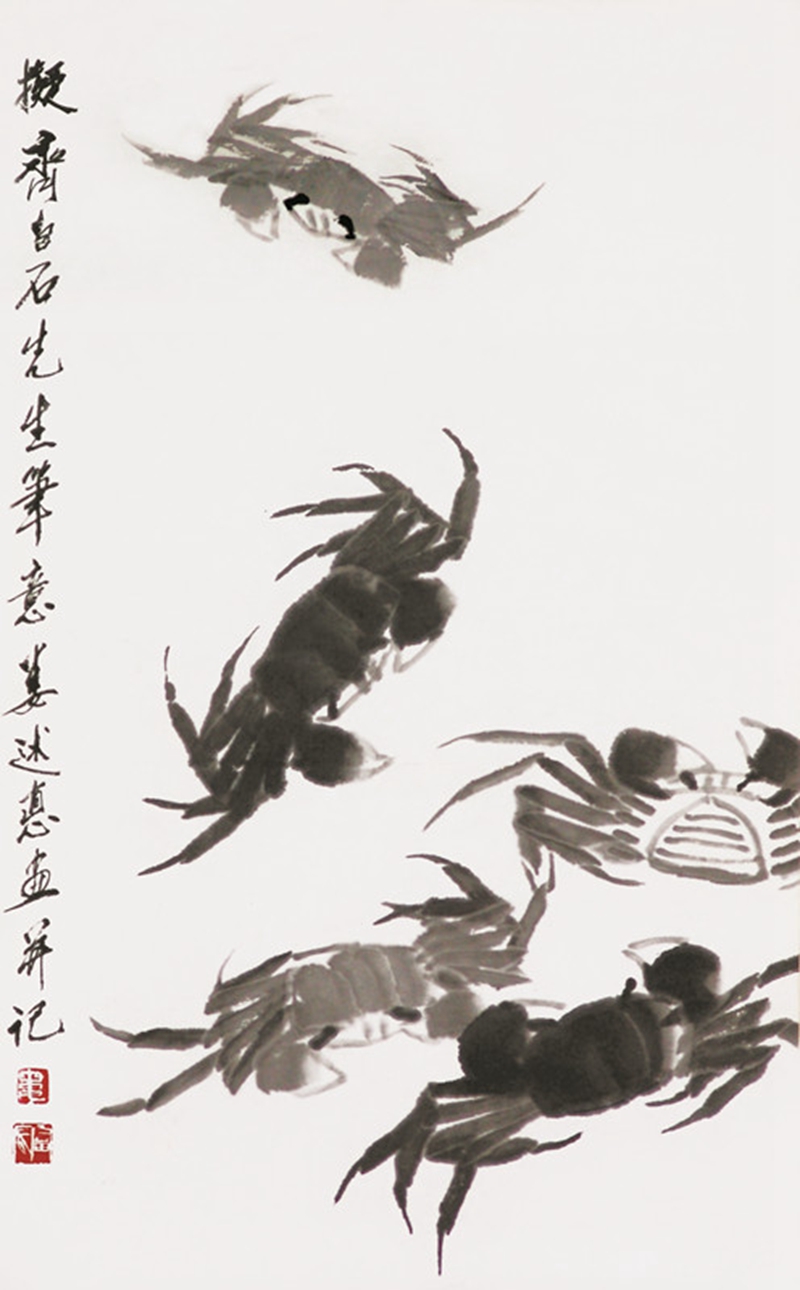 擬齊白石先生筆意婁述惠畫并記